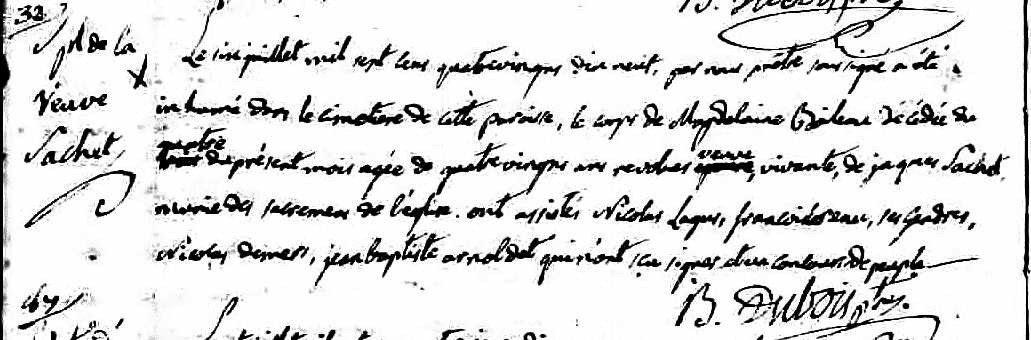 32
Spl de la
Veuve
Sachet
Le six juillet mil sept cens quatrevingns dix neuf, par nous prêtre soussigné a été
inhumé dans le cimetiere de cette paroisse, le corps de Magdelaine décédée du
quatre
du présent mois agée de quatrevingns ans revolues veuve, vivante, de jaques Sachet,
munie des sacremens de l'église. ont assistés Nicolas Laqus, francois, ses gendres,
Nicolas demers, jean baptiste arnoldet qui n'ont sçu signer et un concours de peuple
B. Dubois ptre.